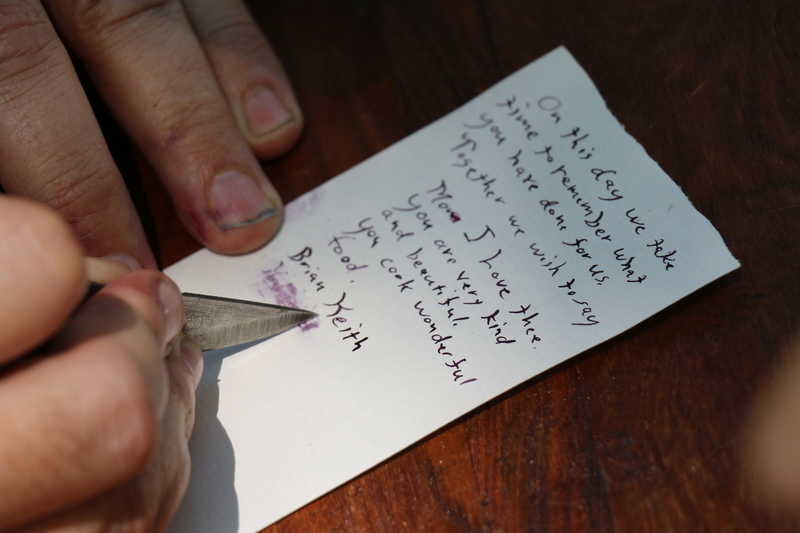 On this day we take
time to remember what
you have done for us.
Together we wish to say
Mom I Love thee.
You are very kind
and beautiful.
You cook wonderful
food.
Brian Keith